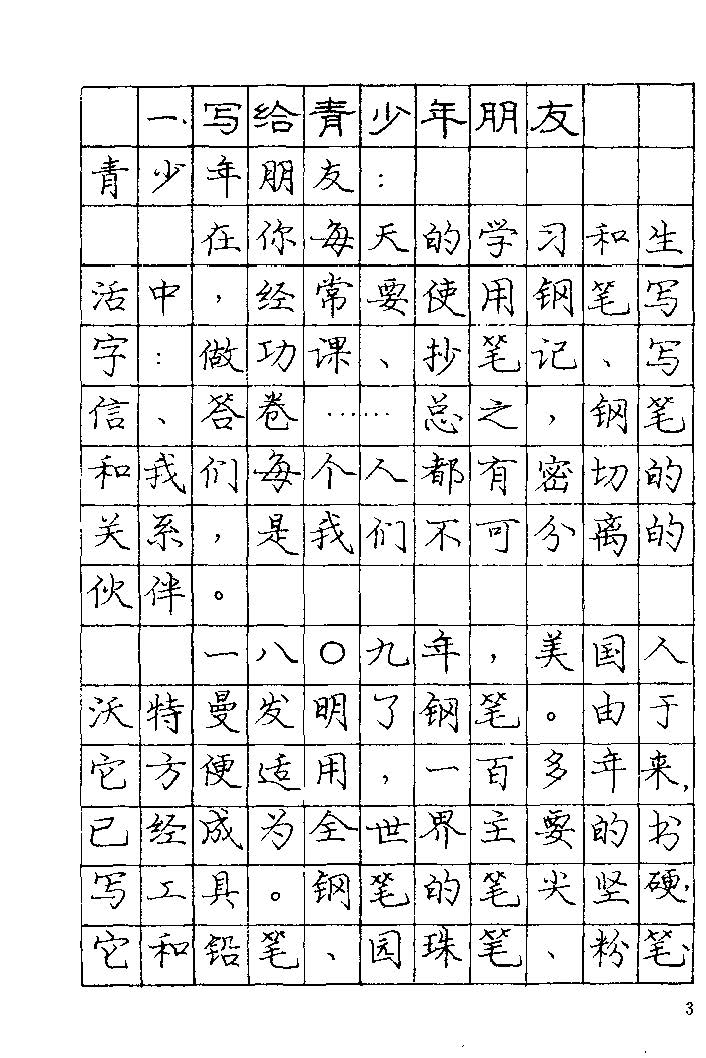 一、写给青少年朋友
青少年朋友：
在你每天的学习和生
活中，经常要使用钢笔写
字：做功课、抄笔记、写
信、答卷……总之，钢笔
和我们每个人都有密切的
关系，是我们不可分离的
伙伴。
一八〇九年，美国人
沃特曼发明了钢笔。由于
它方便适用，一百多年来，
已经成为全世界主要的书
写工具。钢笔的笔尖坚硬，
它和铅笔、园珠笔、粉笔、
3